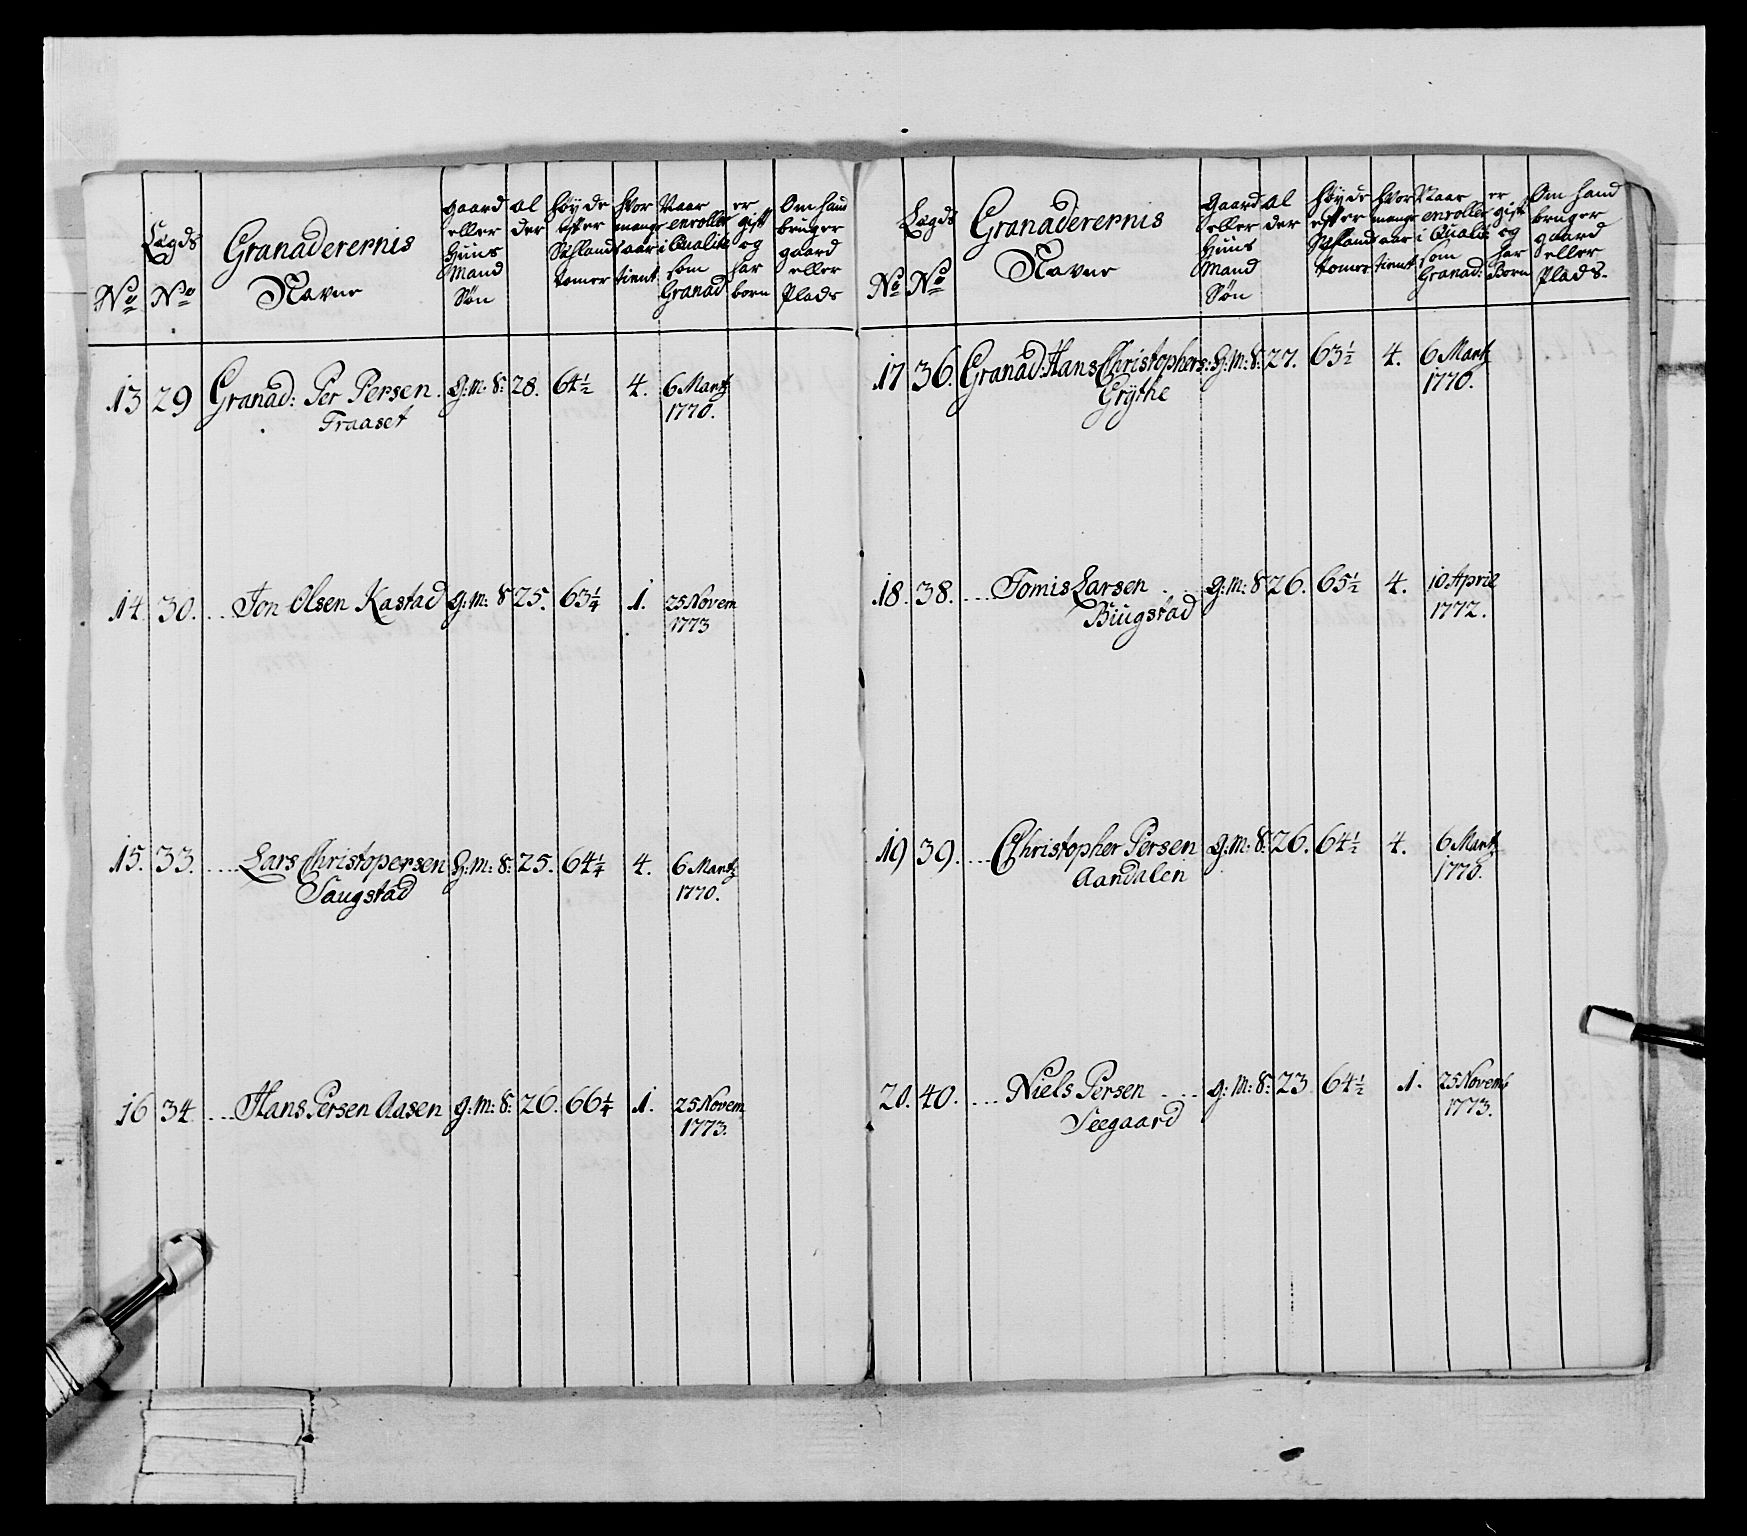 No
Lægds No
Granaderernis Navne
gaard eller Huus Mand Søn
al der
høyde efter Siellands tomer
hvor mange aar tient
Naar enrollet i Qualite som Granad
er gift og har born
Om hand bruger gaard eller Plads
13 29 Granad: Per Persen. g: m: S: 28. 64½ 4. 6 Martz
Fraaset 1770.
14. 30. .... Jon Olsen Kastad g: m: S 25. 63¼ 1. 25 Novem
1773
15. 33. .... Lars Christopersen H: m: S: 25. 64¼ 4. 6 Martz
Saugstad 1770.
16 34. .... Hans Persen Aasen g: m: S: 26. 66¼ 1. 25 Novem
1773.
No
Lægds No
Granaderernis Navne
gaard eller Huus Mand Søn
al der
høyde efter Siellands tomer
hvor mange aar tient
Naar enrollet i Qualit: som Granad:
er gift og har Born
Om hand bruger gaard eller Plads.
17 36. Granad: Hans Christophers: H: m: S: 27. 63½ 4. 6 Martz
Grÿthe 1770.
18. 38. .... Tomis Larsen g: m: S 26. 65½ 4. 10 April
Biugstad 1772.
19 39. .... Christopher Persen g: m: S: 26. 64½ 4. 6 Martz
Aandalen 1770.
20. 40. .... Niels Persen .... g: m: S: 23 64½ 1. 25 Novemb
Seegaard 1773.